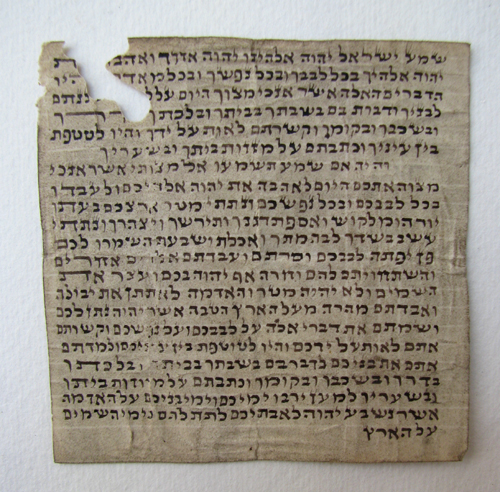 שמע ישראל יהוה אלהינו יהוה אחד
יהוה אלהיך בכל לבבך ובכל נפשך ובכל
הדברים האלה אשר אנכי מצוך היום על
לבניך ודברת בם בשבתך בביתך ובלכתך
ובשכבך ובקומך וקשרתם לאות על ידך והיו לטטפת
בין עיניך וכתבתם על מזזות ביתך ובשעריך
והיה אם שמע תשמעו אל מצותי אשר אנכי
מצוה אתכם היום לאהבה את יהוה אלהיכם ולעבדו
בכל לבבכם ובכל נפשכם ונתתי מטר ארצכם בעתו
יורה ומלקוש ואספת דגנך ותירשך ויצהרך ונתתי
עשב בשדך לבהמתך ואכלת ושבעת השמרו לכם
פן יפתה לבבכם וסרתם ועבדתם אלהים אחרים
והשתחויתם להם וחרה אף יהוה בכם ועצר את
השמים ולא יהיה מטר והאדמה לא תתן את יבולה
ואבדתם מהרה מעל הארץ הטבה אשר יהוה נתן לכם
ושמתם את דברי אלה על לבבכם ועל נפשכם וקשרתם
אתם לאות על ידכם והיו לטוטפת בין עיניכם ולמדתם
אתם את בניכם לדבר בם בשבתך בביתך ובלכתך
בדרך ובשכבך ובקומך וכתבתם על מזוזות ביתך
ובשעריך למען ירבו ימיכם וימי בניכם על האדמה
אשר נשבע יהוה לאבתיכם לתת להם כימי השמים
על הארץ